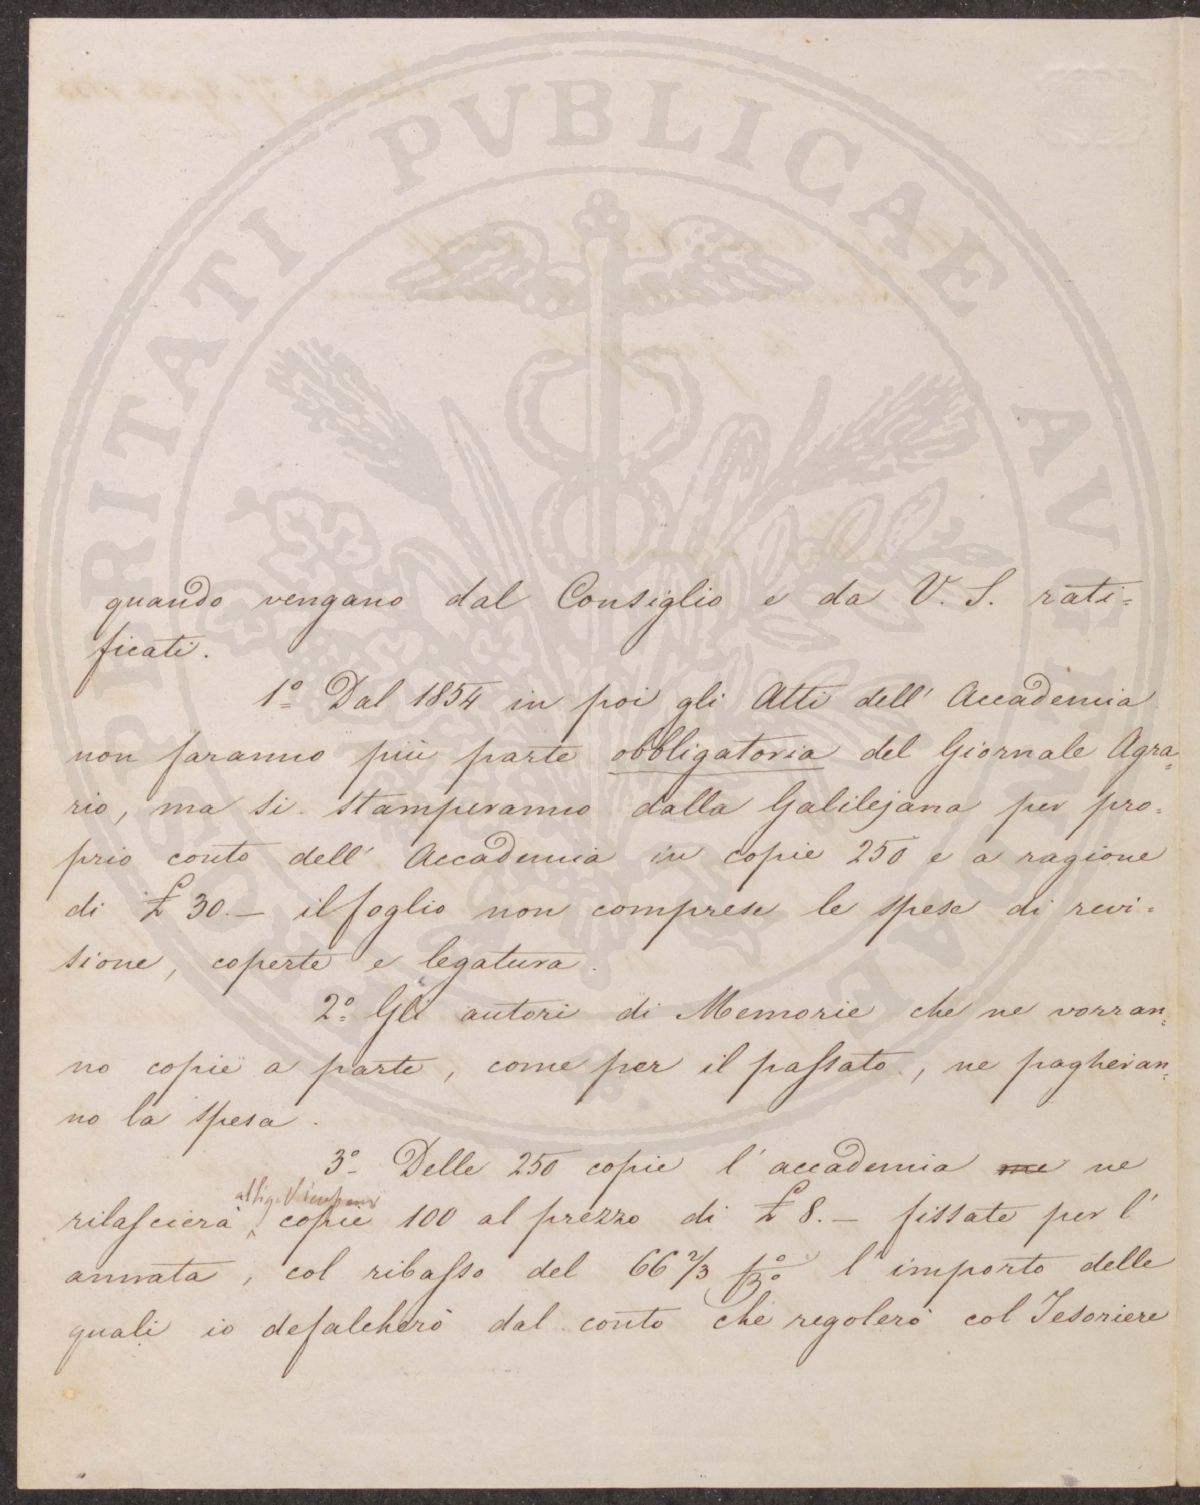 PROSPERITATI PVBLICAE AVGENDAE
quando vengano dal Consiglio e da V. S. rati=
ficati.
1º Dal 1854 in poi gli Atti dell' Accademia
non faranno più parte obbligatoria del Giornale Agra=
rio, ma si stamperanno dalla Galilejana per pro=
prio conto dell' Accademia in copie 250 e a ragione
di £ 30.— il foglio non comprese le spese di revi=
sione, coperte e legatura.
2º Gli autori di Memorie che ne vorran=
no copie a parte, come per il passato, ne pagheran=
no la spesa.
3º Delle 250 copie l' accademia me ne
al Sig. Vieusseux
rilascierà copie 100 al prezzo di £ 8.— fissate per l'
annata, col ribasso del 66 2/3 p% l' importo delle
quali io defalcherò dal conto che regolerò col Tesoriere